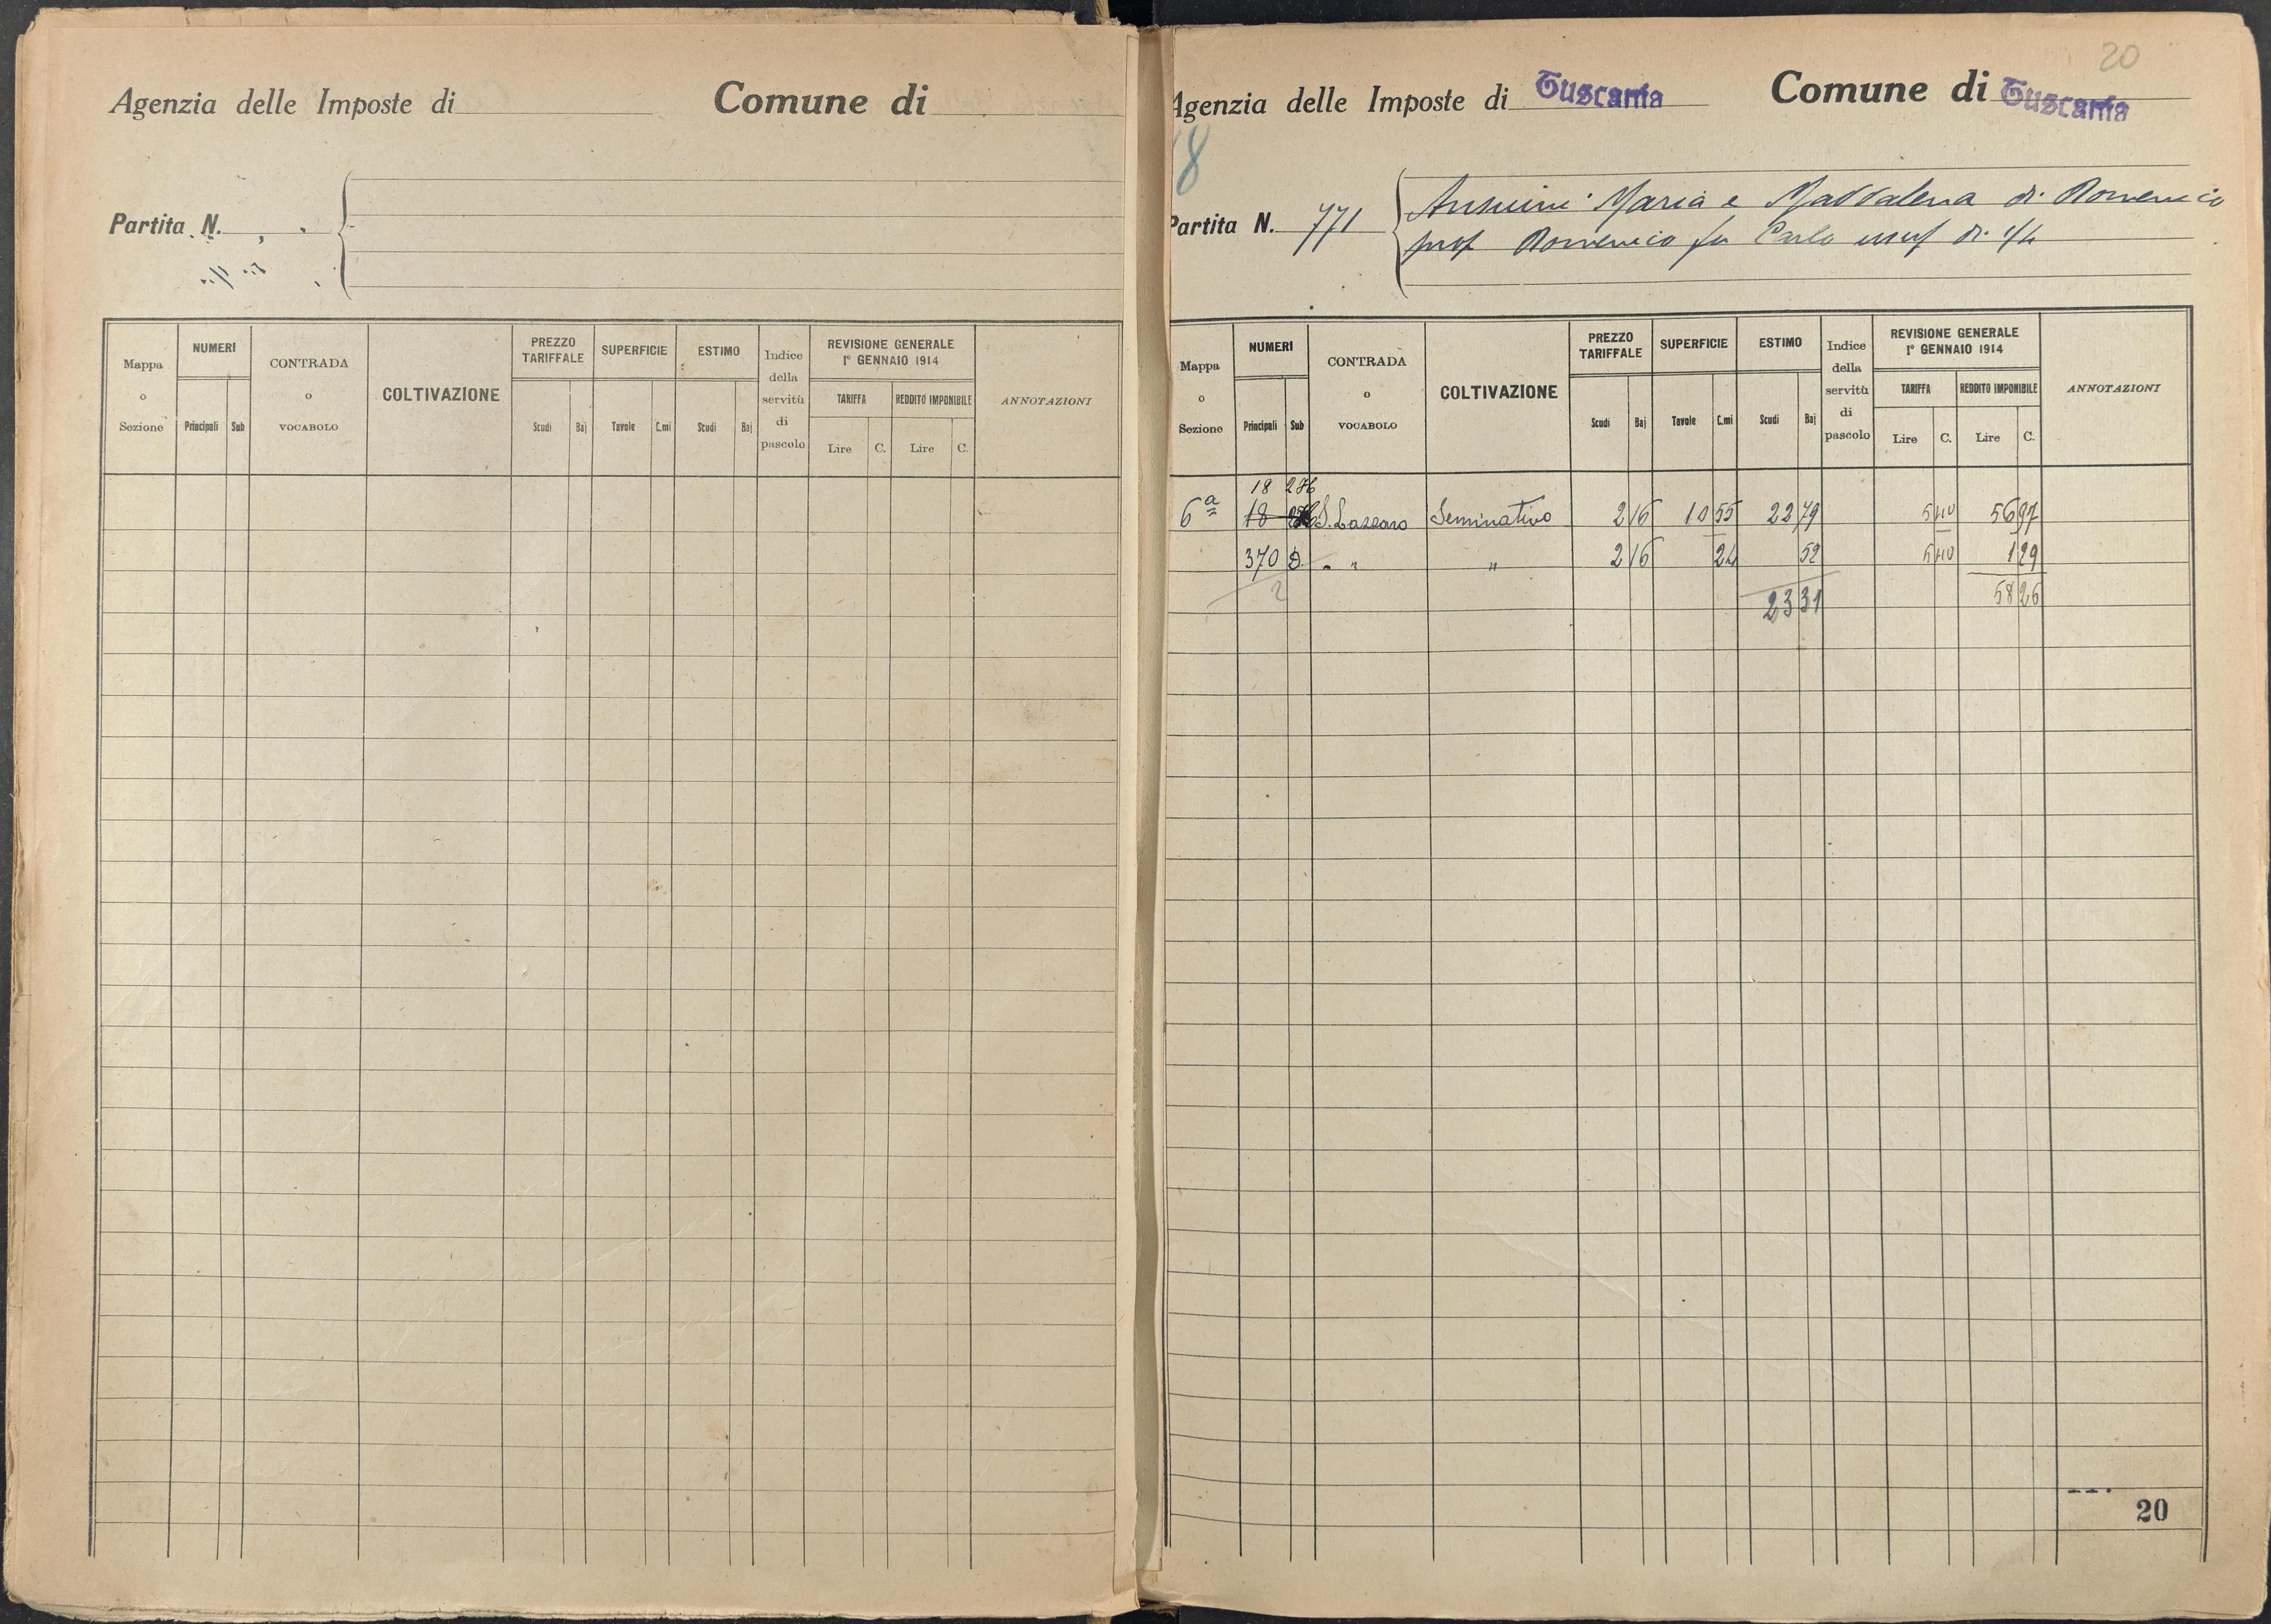 Agenzia delle Imposte di Comune di
Partita N.
Mappa o Sezione
NUMERI
Principali Sub
CONTRADA o VOCABOLO
COLTIVAZIONE
PREZZO TARIFFALE
Scudi Baj
SUPERFICIE
Tavole C.mi
ESTIMO
Scudi Baj
Indice della servitù di pascolo
REVISIONE GENERALE
1° GENNAIO 1914
TARIFFA REDDITO IMPONIBILE
Lire C. Lire C.
ANNOTAZIONI
20
Agenzia delle Imposte di Tuscania Comune di Tuscania
8
Partita N. 771
Maria e Maddalena di Domenico
prop Domenico fu Carlo usuf di 1/4
Mappa o Sezione
NUMERI
Principali Sub
CONTRADA o VOCABOLO
COLTIVAZIONE
PREZZO TARIFFALE
Scudi Baj
SUPERFICIE
Tavole C.mi
ESTIMO
Scudi Baj
Indice della servitù di pascolo
REVISIONE GENERALE
1° GENNAIO 1914
TARIFFA REDDITO IMPONIBILE
Lire C. Lire C.
ANNOTAZIONI
18 276
6ª 18 S. Lazzaro Seminativo 2 16 10 55 22 79 5 40 56 97
370 " " " 2 16 24 52 5 40 1 29
2 23 31 58 26
20